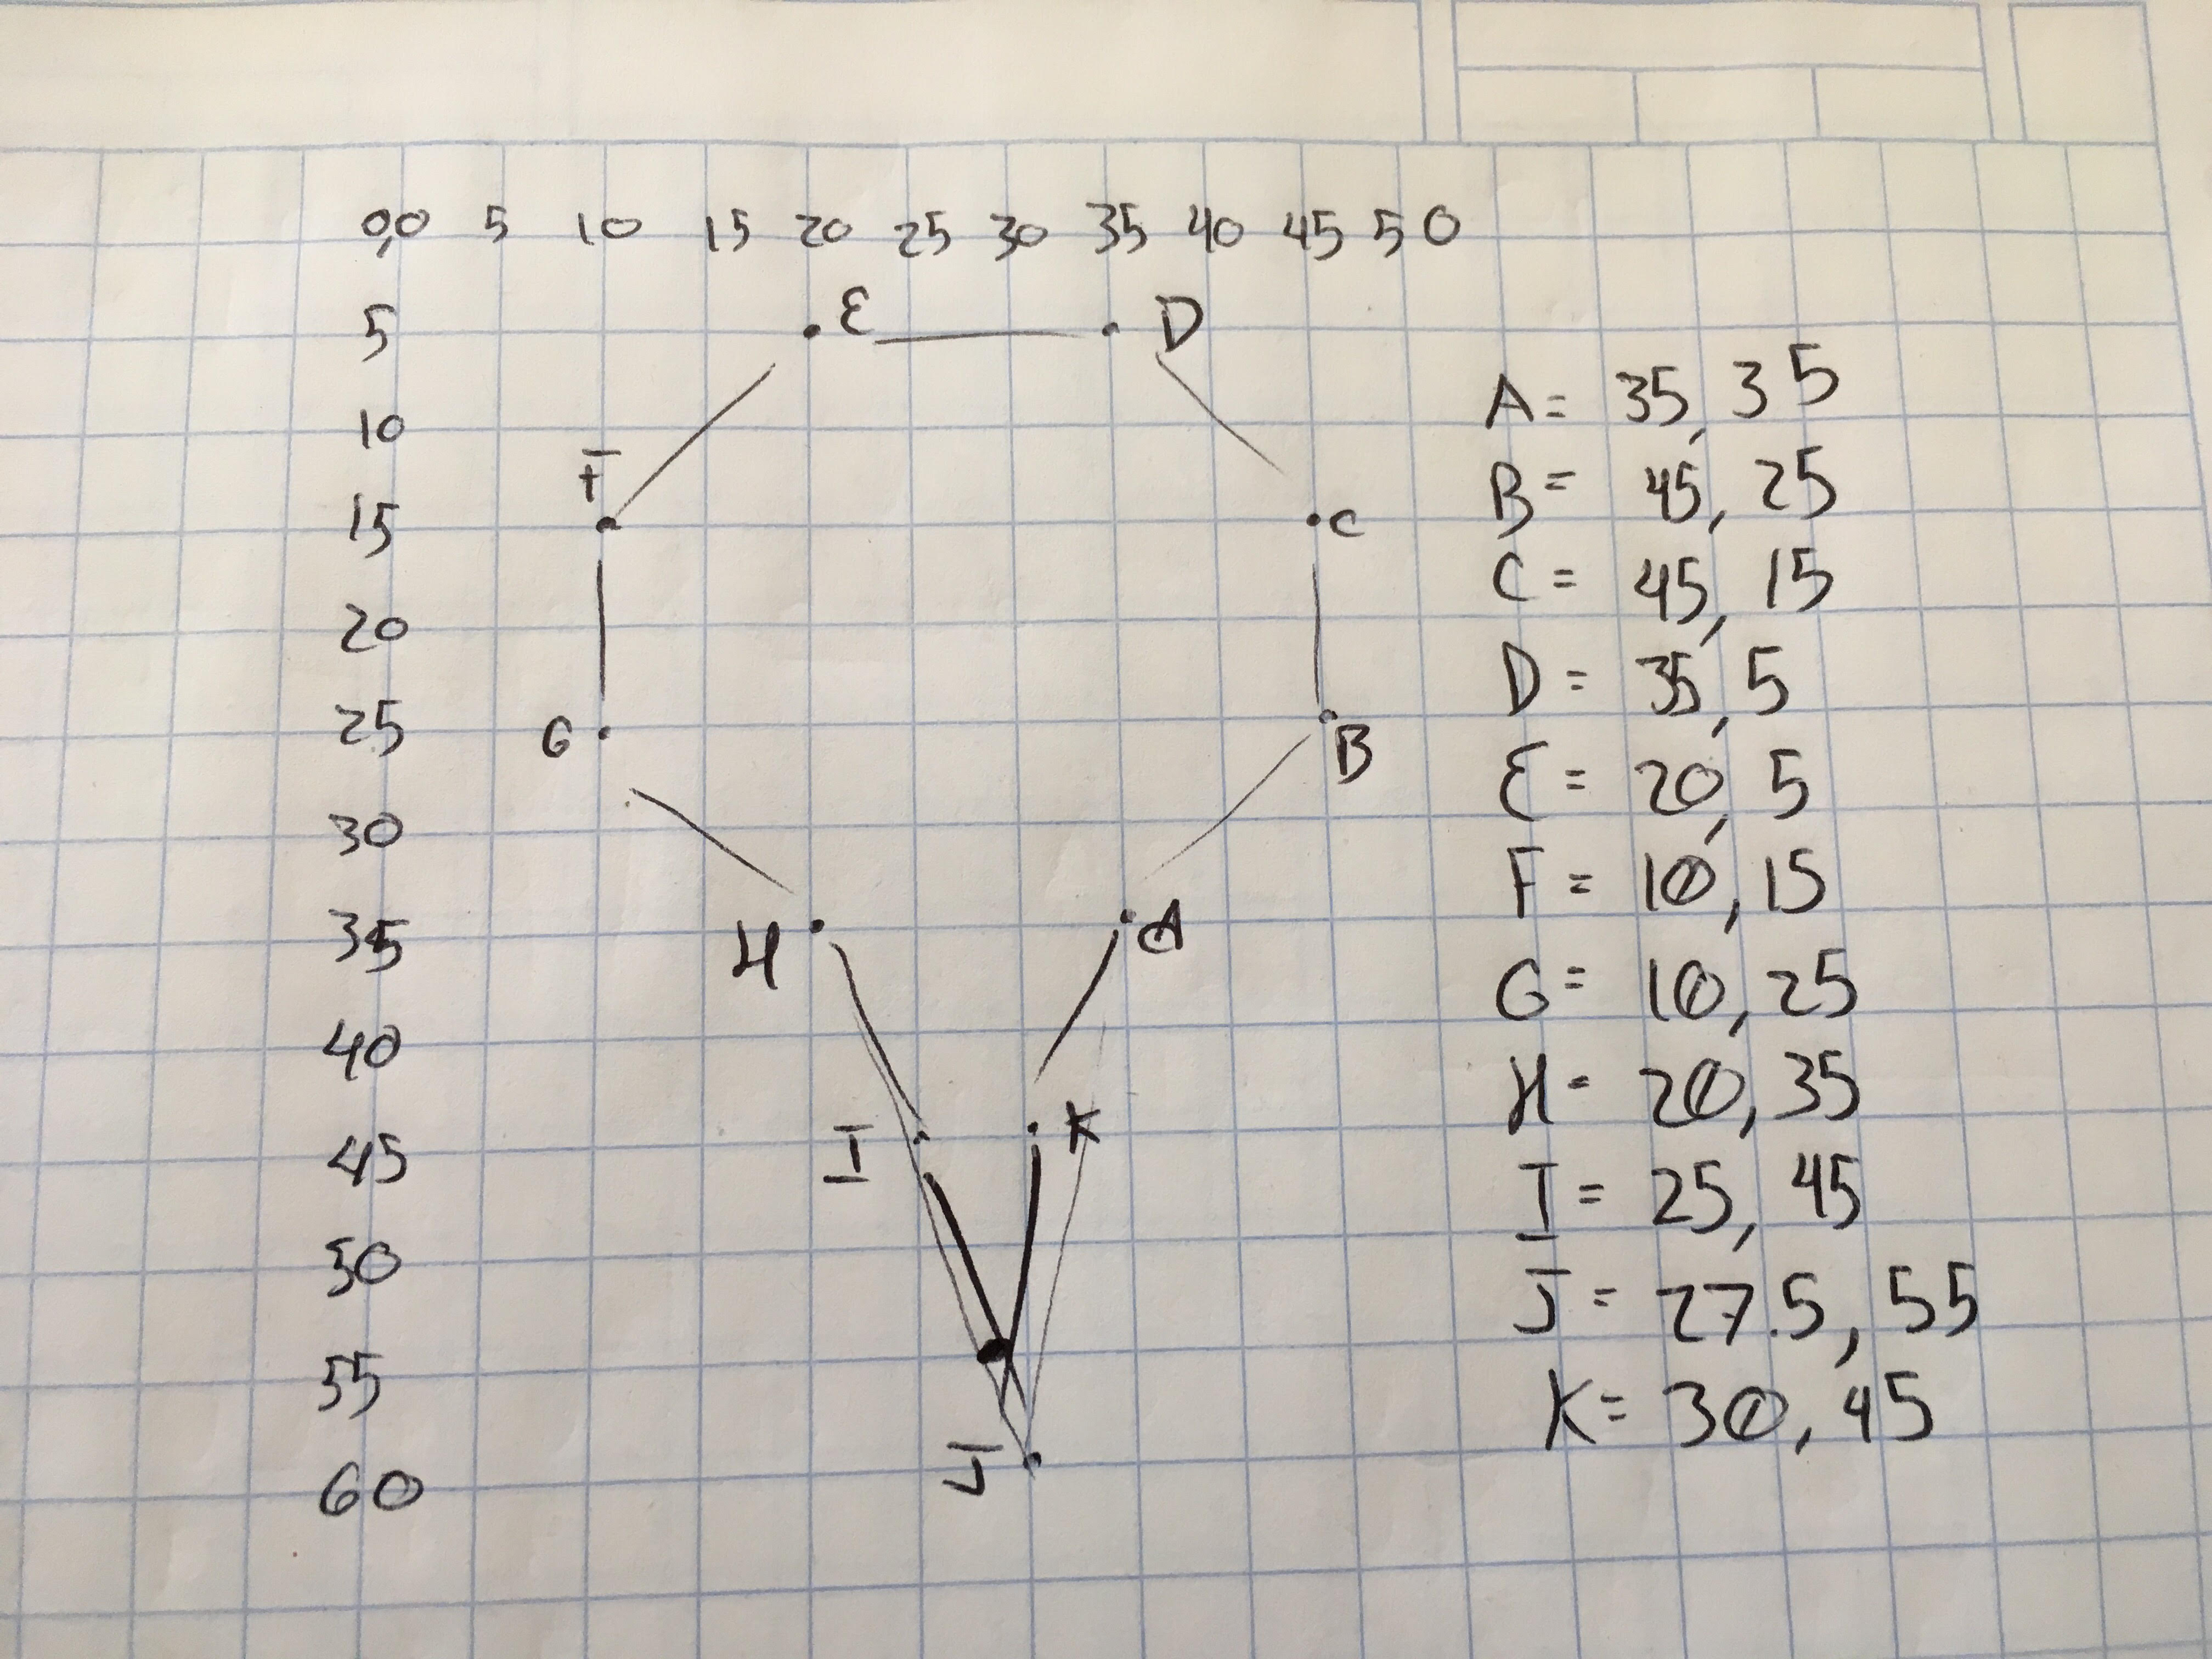 0,0 5 10 15 20 25 30 35 40 45 50
5
10
15
20
25
30
35
40
45
50
55
60
E D
F
C
G
B
H A
I K
J
A= 35, 35
B= 45, 25
C= 45, 15
D= 35, 5
E= 20, 5
F= 10, 15
G= 10, 25
H= 20, 35
I= 25, 45
J= 27.5, 55
K= 30, 45